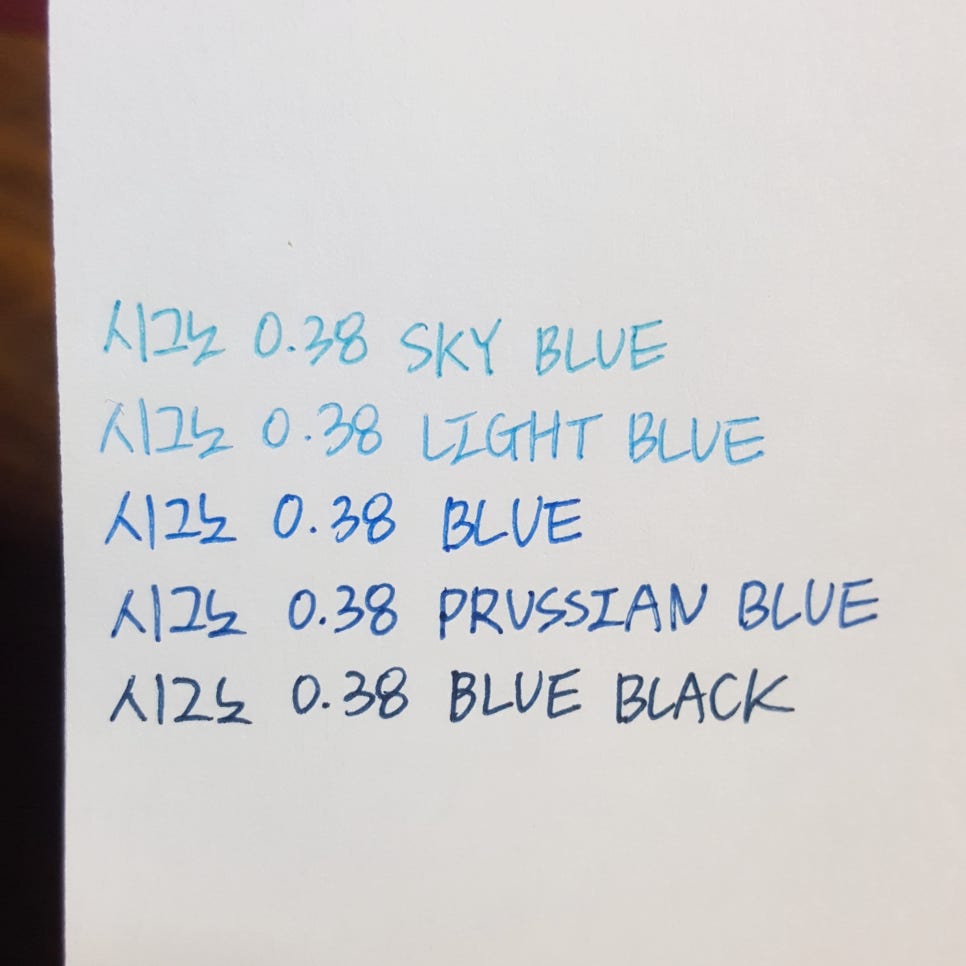 시그노 0.38 SKY BLUE
시그노 0.38 LIGHT BLUE
시그노 0.38 BLUE
시그노 0.38 PRUSSIAN BLUE
시그노 0.38 BLUE BLACK